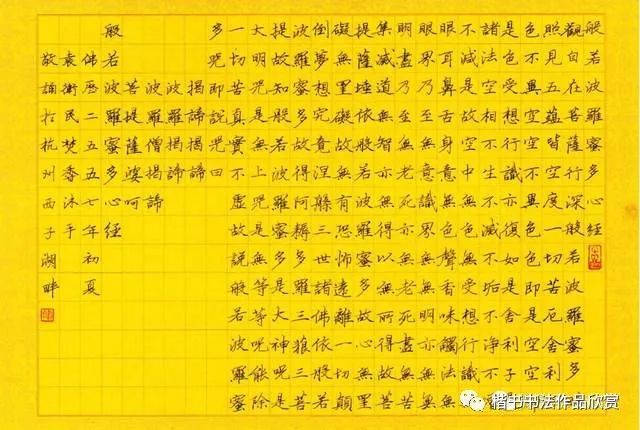 般若波羅蜜多心經
觀自在菩薩行深般若波羅蜜多
照見五蘊皆空度一切苦厄舍利
色不異空空不異色色即是空空
是色受想行識亦復如是舍利子
諸法空相不生不滅不垢不淨不
不減是故空中無色無受想行識
眼耳鼻舌身意無色聲香味觸法
眼界乃至無意識界無無明亦無無
明盡乃至無老死亦無老死盡無苦
集滅道無智亦無得以無所得故苦
提薩埵依般若波羅蜜多故心無罣
礙無罣礙故無有恐怖遠離一切顛
倒夢想究竟涅槃三世諸佛依般若
波羅蜜多故得阿耨多羅三藐三菩
提故知般若波羅蜜多是大神呪是
大明咒是無上咒是無等等呪能除
一切苦真實不虛故說般若波羅蜜
多咒即說咒曰
揭諦揭諦
波羅揭諦
波羅僧揭諦
菩提薩婆呵
般若波羅蜜多心經
佛曆二五五七年初夏
袁衛民焚香沐手
敬誦於杭州西子湖畔
楷书书法作品欣赏